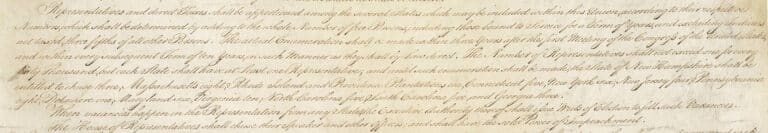 Representatives and direct Taxes shall be apportioned among the several States which may be included within this Union, according to their respective
Numbers, which shall be determined by adding to the whole Number of free Persons, including those bound to Service for a Term of Years, and excluding Indians
not taxed, three fifths of all other Persons. The actual Enumeration shall be made within three Years after the first Meeting of the Congress of the United States,
and within every subsequent Term of ten Years, in such Manner as they shall by Law direct. The Number of Representatives shall not exceed one for every
thirty Thousand, but each State shall have at Least one Representative; and until such enumeration shall be made, the State of New Hampshire shall be
entitled to chuse three, Massachusetts eight, Rhode Island and Providence Plantations one, Connecticut five, New York six, New Jersey four, Pennsylvania
eight, Delaware one, Maryland six, Virginia ten, North Carolina five, South Carolina five, and Georgia three.
When vacancies happen in the Representation from any State, the Executive Authority thereof shall issue Writs of Election to fill such Vacancies.
The House of Representatives shall chuse their Speaker and other Officers; and shall have the sole Power of Impeachment.